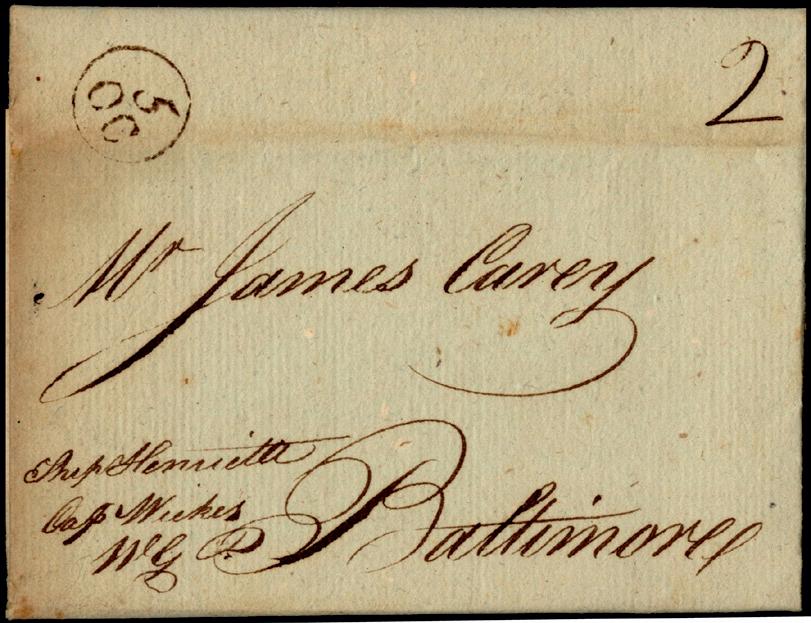 5
OC
2
Mr James Carey
Ship Henrietta
Cap Wickes
Baltimore